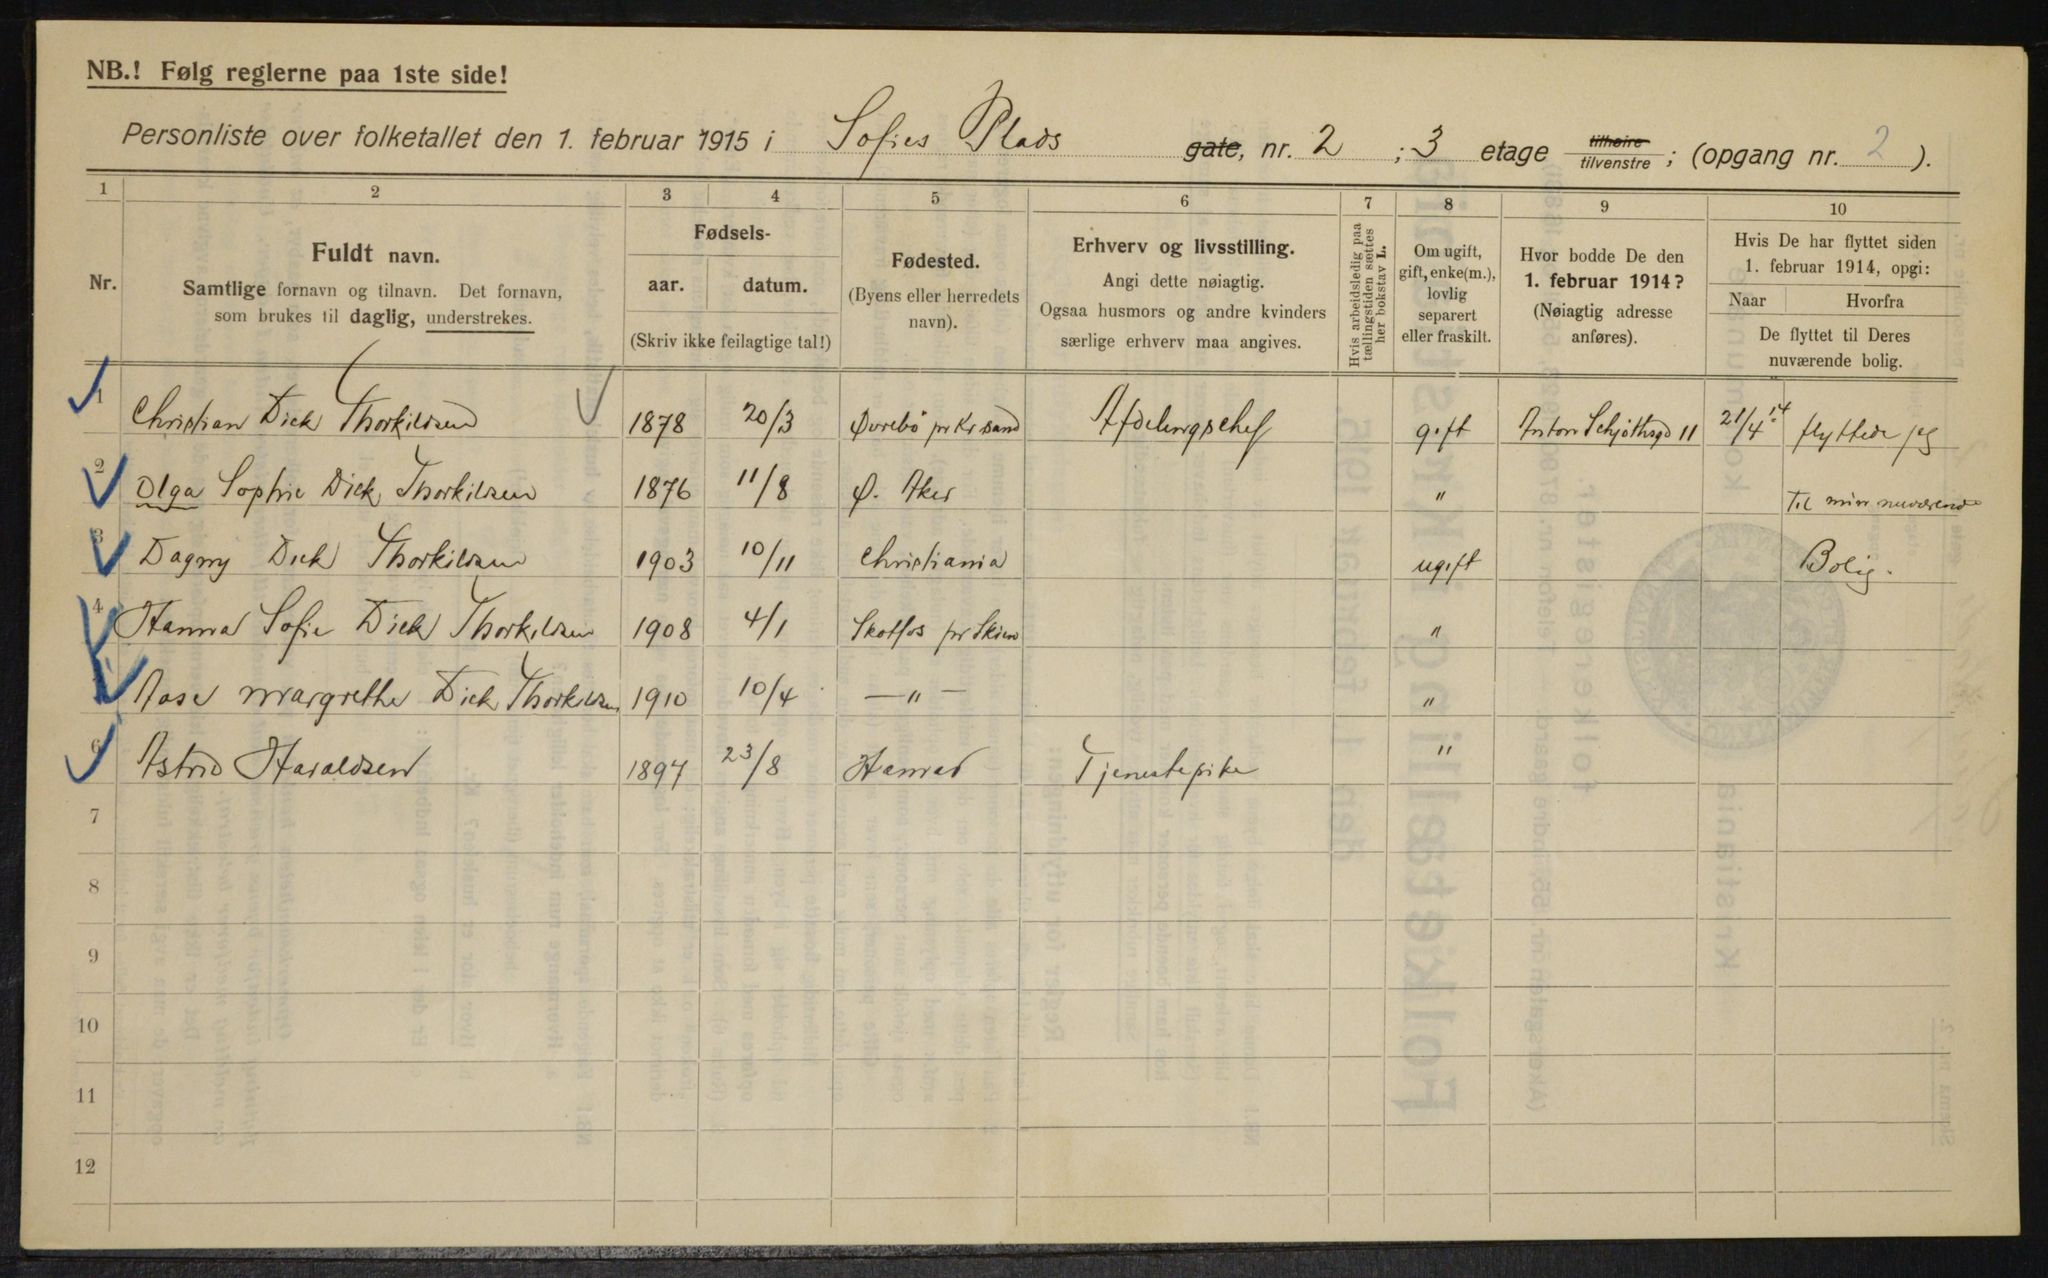 NB.! Følg reglerne paa 1ste side!
Personliste over folketallet den 1. februar 1915 i Sofies Plads gate, nr. 2 ; 3 etage tilhøire tilvenstre ; (opgang nr. 2 ).
1 2 3 4 5 6 7 8 9 10
Nr.
Fuldt navn.
Samtlige fornavn og tilnavn. Det fornavn,
som brukes til daglig, understrekes.
Fødsels-
aar. datum.
(Skriv ikke feilagtige tal!)
Fødested.
(Byens eller herredets
navn).
Erhverv og livsstilling.
Angi dette nøiagtig.
Ogsaa husmors og andre kvinders
særlige erhverv maa angives.
Hvis arbeidsledig paa
tællingstiden sættes
her bokstav L.
Om ugift,
gift, enke(m.),
lovlig
separert
eller fraskilt.
Hvor bodde De den
1. februar 1914?
(Nøiagtig adresse
anføres).
Hvis De har flyttet siden
1. februar 1914, opgi:
Naar Hvorfra
De flyttet til Deres
nuværende bolig.
1 Christian Dick Thorkildsen 1878 20/3 Øvrebö pr Kr sand Afdelingschef gift Anton Schjöthsgd 11 21/4 14 flyttede jeg
2 Olga Sophie Dick Thorkildsen 1876 11/8 Ø. Aker " til min nuværende
3 Dagny Dick Thorkildsen 1903 10/11 Christiania ugift Bolig.
4 Hanna Sofie Dick Thorkildsen 1908 4/1 Skotfos pr Skien "
Aase Margrethe Dick Thorkildsen 1910 10/4 — " — "
6 Astrid Haraldsen 1897 23/8 Tjenestepike "
7
8
9
10
11
12